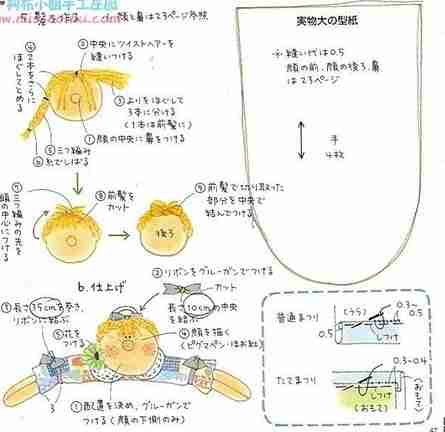 布依小姐手工庄园
www.misabo.com
5. 髪を作る
(顔と鼻は73ページ参照)
②中央にツイストヘアーを
縫いつける
④2本をさらに
ほぐしてとめる
③よりをほぐして
3本に分ける
(1本は前髪に)
①顔の中央に鼻をつける
⑤三つ編み
⑥糸でしばる
⑦三つ編みの先を
頭の中心につける
⑧前髪を
カット
⑨前髪で切り取った
部分を中央で
結んでつける
後ろ
実物大の型紙
縫い代は0.5
顔の前、顔の後ろ、鼻
は73ページ
手
4枚
6. 仕上げ
②リボンをグルーガンでつける
カット
③長さ35cmを巻き、
リボンに結ぶ
長さ10cmの中央
を結ぶ
⑤花を
つける
④顔を描く
(ピグマペン)
3
①配置を決め、グルーガンで
つける(顔の下側のみ)
普通まつり
(うら)
0.3~
0.5
0.5
しつけ
たてまつり
0.3~0.4
しつけ
(おもて)
(おもて)
67